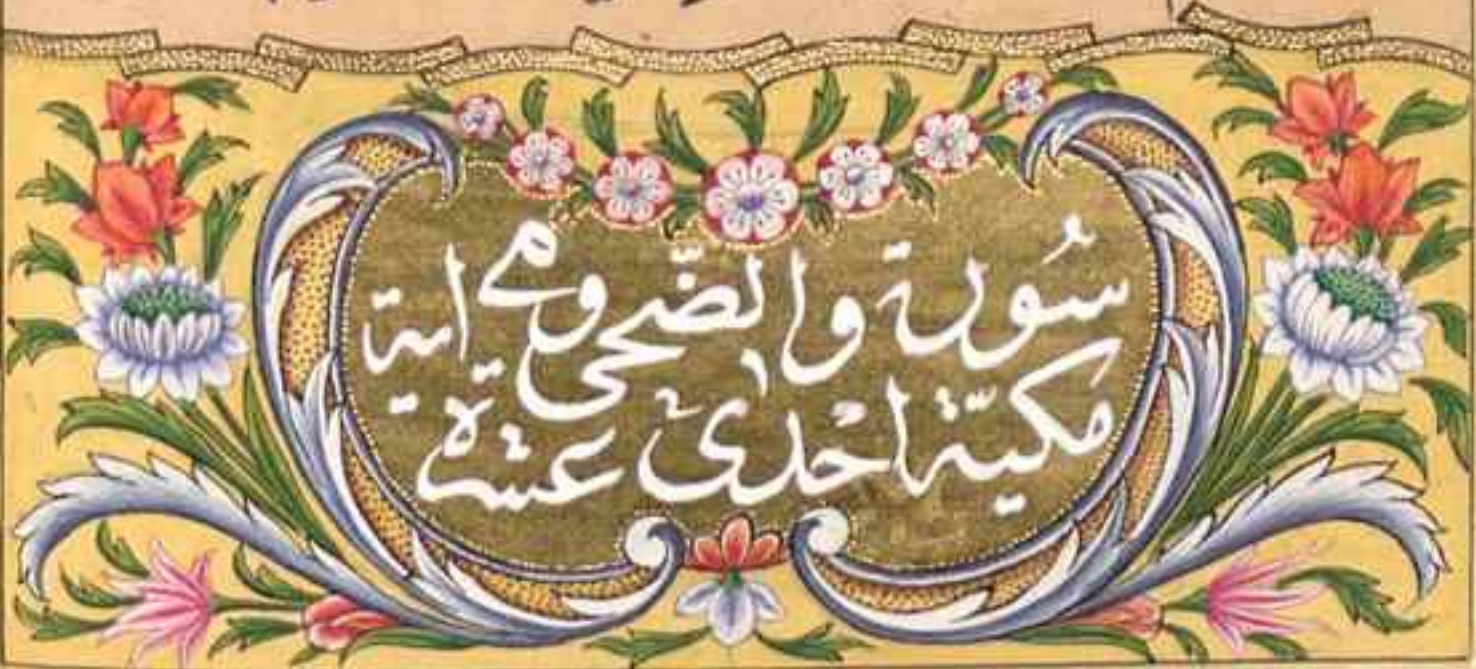 سُورة والضّحى وهى
مكيّة احْدى عشرة اية